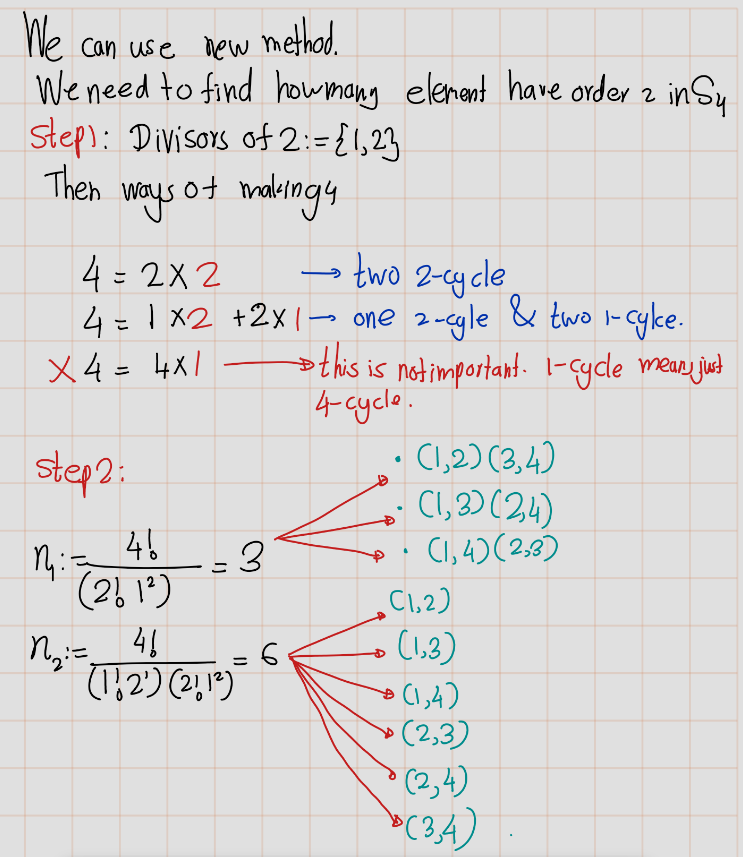 We can use new method.
We need to find howmany element have order 2 in S₄
Step1: Divisors of 2:={1,2}
Then ways of making 4
4 = 2×2 → two 2-cycle
4 = 1×2 +2×1 → one 2-cycle & two 1-cylce.
× 4 = 4×1 → this is not important. 1-cycle means just
4-cycle.
Step2:
n₁:= 4!/(2! 1²) = 3
• (1,2)(3,4)
• (1,3)(2,4)
• (1,4)(2,3)
n₂:= 4!/(1!2¹)(2!1²) = 6
(1,2)
(1,3)
(1,4)
(2,3)
(2,4)
(3,4)